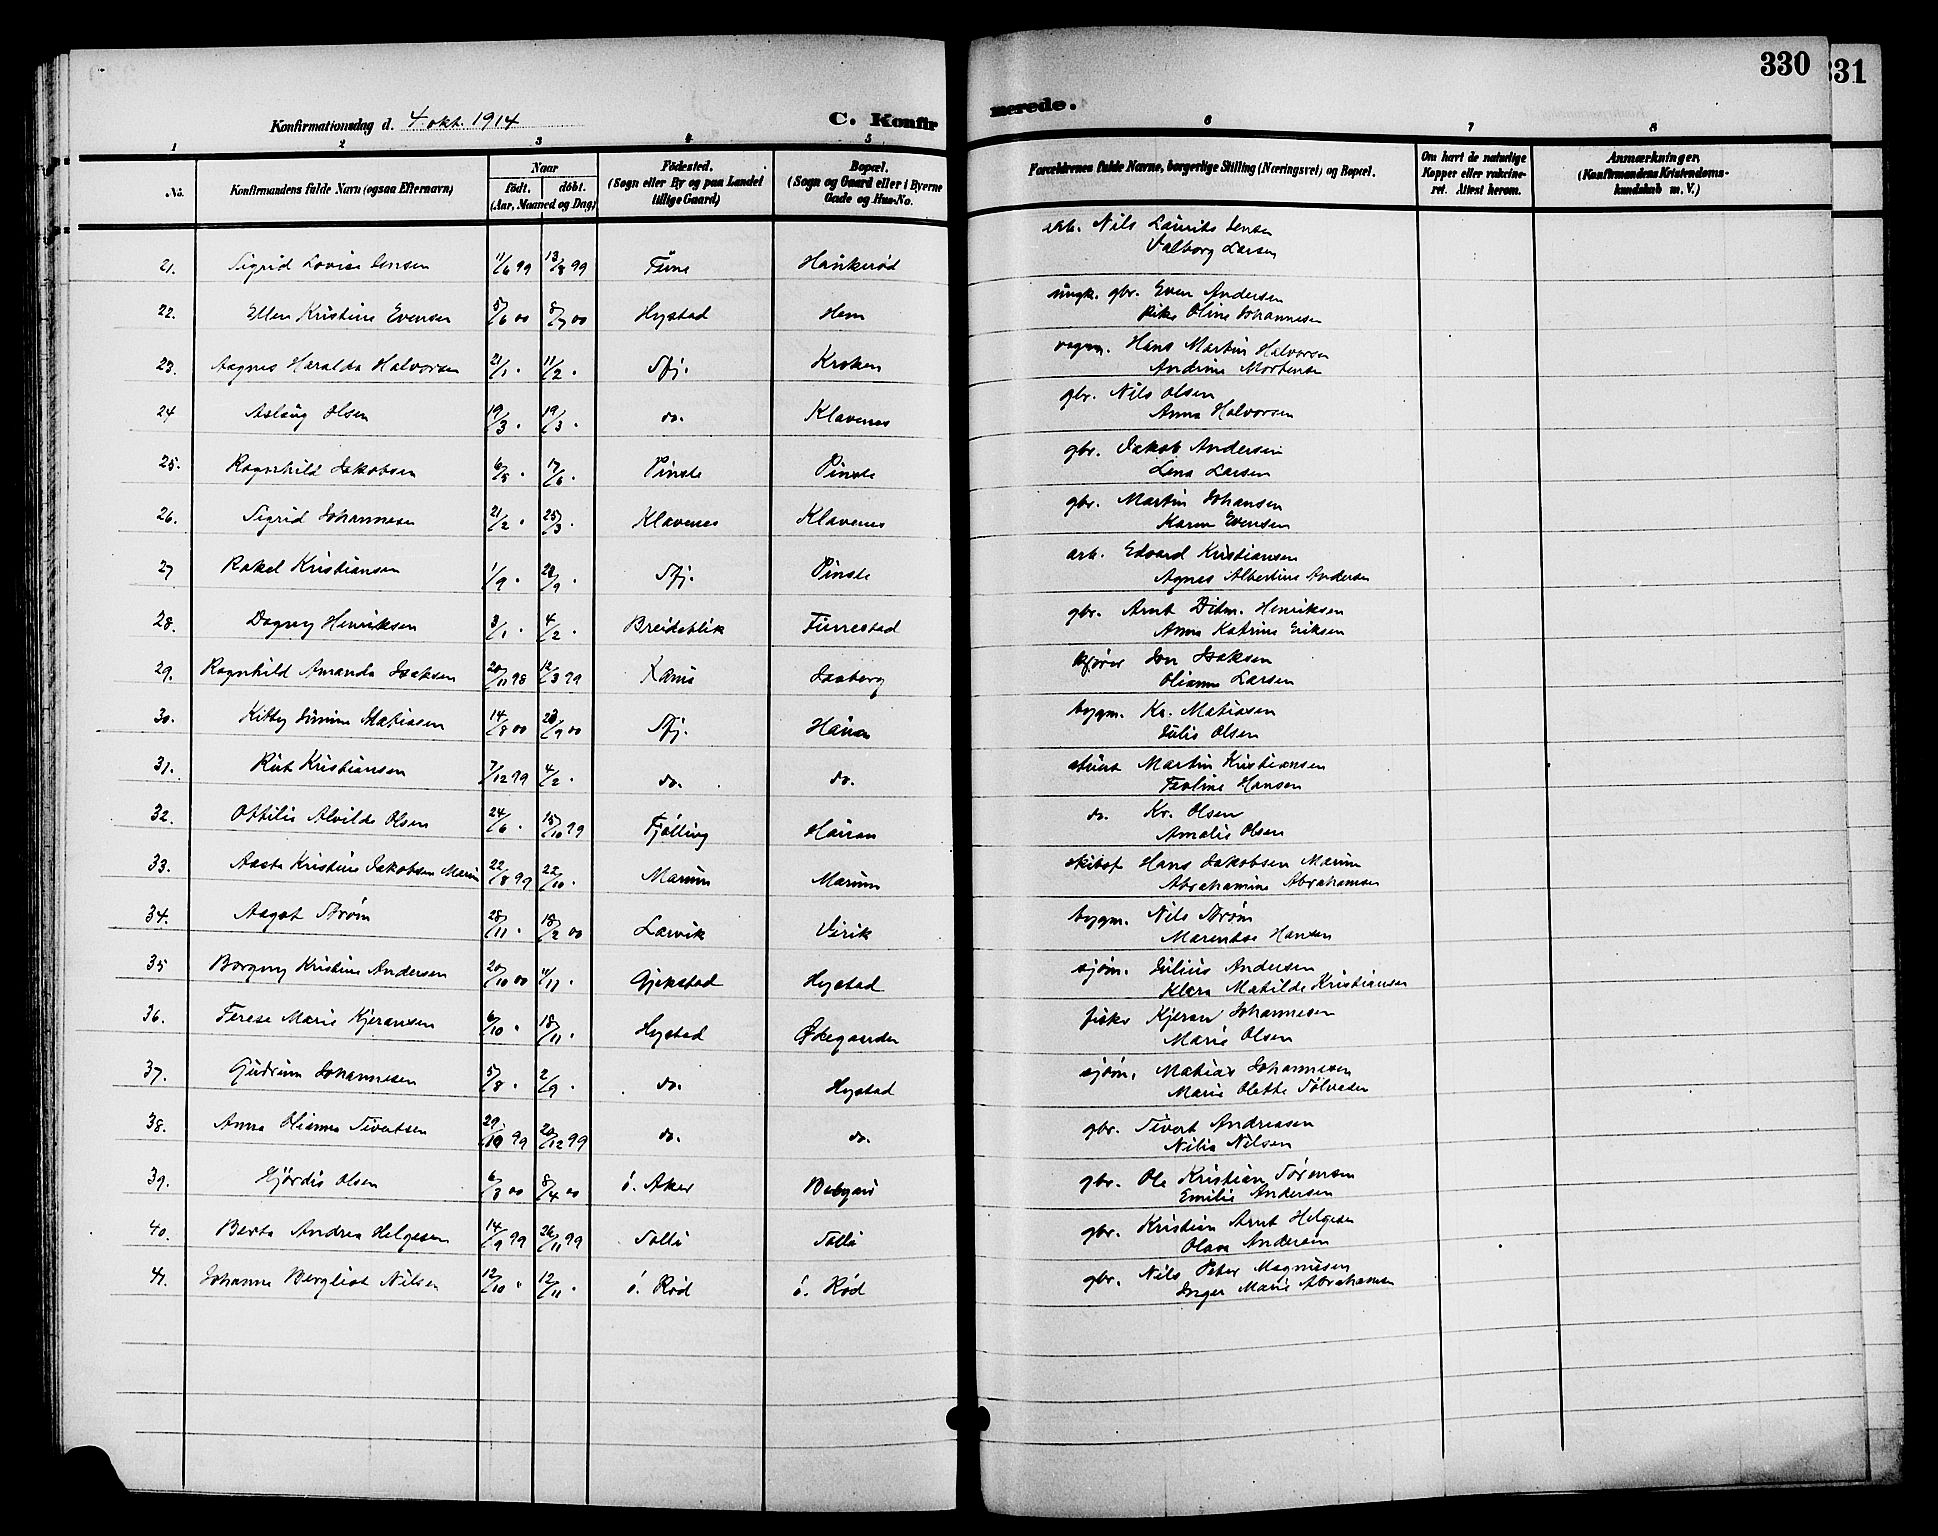 330
331
Konfirmationsdag d. 4. okt. 1914
C. Konfirmerede.
1 2 3 4 5 6 7 8
No. Konfirmandens fulde Navn (ogsaa Efternavn) Naar født. døbt. (Aar, Maaned og Dag) Födested. (Sogn eller By og paa Landet tillige Gaard) Bopæl. (Sogn og Gaard eller i Byerne Gade og Hus-No. Forældrenes fulde Navne, borgerlige Stilling (Næringsvei) og Bopæl. Om havt de naturlige Kopper eller vakcineret. Attest herom. Anmærkninger, (Konfirmandens Kristendomskundskab m. V.)
21. Sigrid Lovise Jensen 11/6 99 13/8 99 Haukerød arb. Nils Laurits Jensen
Valborg Larsen
22. Ellen Kristine Evensen 5/6 00 8/7 00 Hystad Hem ungk. gbr. Even Andersen
pike Oline Johannesen
23. Aagnes Haralda Halvorsen 21/1 . 11/2 . Sfj. Kroken vognm. Hans Martin Halvorsen
Andrine Mortensen
24 Aslaug Olsen 19/3 . 19/3 . do. Klavenes gbr. Nils Olsen
Anna Halvorsen
25. Ragnhild Jakobsen 6/5 . 17/6 . Pinsle Pinsle gbr. Jakob Andersen
Lena Larsen
26. Sigrid Johannesen 21/2 . 25/3 . Klavenes Klavenes gbr. Martin Johansen
Karen Evensen
27 Rakel Kristiansen 1/9 . /9 . Sfj. Pinsle arb. Edvard Kristiansen
Agnes Albertine Andersen
28. Dagny Henriksen 3/1 . 4/2 . Breideblik Furrestad gbr. Arnt Ditm. Henriksen
Anna Katrine Eriksen
29. Ragnhild Amanda Isaksen 20/11 98 12/3 99 Isaksen
Larsen
30. Kitty Matiasen 14/8 00 23/9 00 Sfj. Hauan bygm. Kr. Matiasen
Julie Olsen
31. Rut Kristiansen 7/12 99 4/2 . do. do. stuert Martin Kristiansen
Hansen
32. Ottilie Alvilde Olsen 24/6 . 15/10 99 Tjølling Hauan do. Kr. Olsen
Amalie Olsen
33. Aasta Kristine Jakobsen Marum 22/8 99 22/10 . Marum Marum skibsf Hans Jakobsen Marum
Abrahamine Abrahamsen
34. Aagot Strøm 28/11 . 18/2 00 Larvik Virik bygm. Nils Strøm
Marentse Hansen
35 Borgny Kristine Andersen 20/10 00 11/11 . Gjekstad Hystad sjøm. Julius Andersen
Klara Matilde Kristiansen
36. Terese Marie Kjeransen 6/10 . 18/11 . Hystad Økegaarden fisker Kjeran Johannesen
Marie Olsen
37. Gudrun Johannesen 5/8 . 2/9 . do. Hystad sjøm. Matias Johannesen
Marie Olette Sølvesen
38. Anna Olianna Sivertsen 29/10 99 20/12 99 do. do. gbr. Sivert Andreasen
Nilia Nilsen
39. Hjørdis Olsen 6/3 00 8/4 00 ö. Aker Bøbgard gbr. Ole Kristian Sørensen
Emilie Andersen
40. Berta Andrea Helgesen 14/9 99 26/11 99 Solli Solli gbr. Kristian Arnt Helgesen
Olava Andersen
41. Johanne Bergliot Nilsen 12/10 . 12/11 . ö. Rød ö. Rød gbr. Nils Peter Magnusen
Inger Marie Abrahamsen